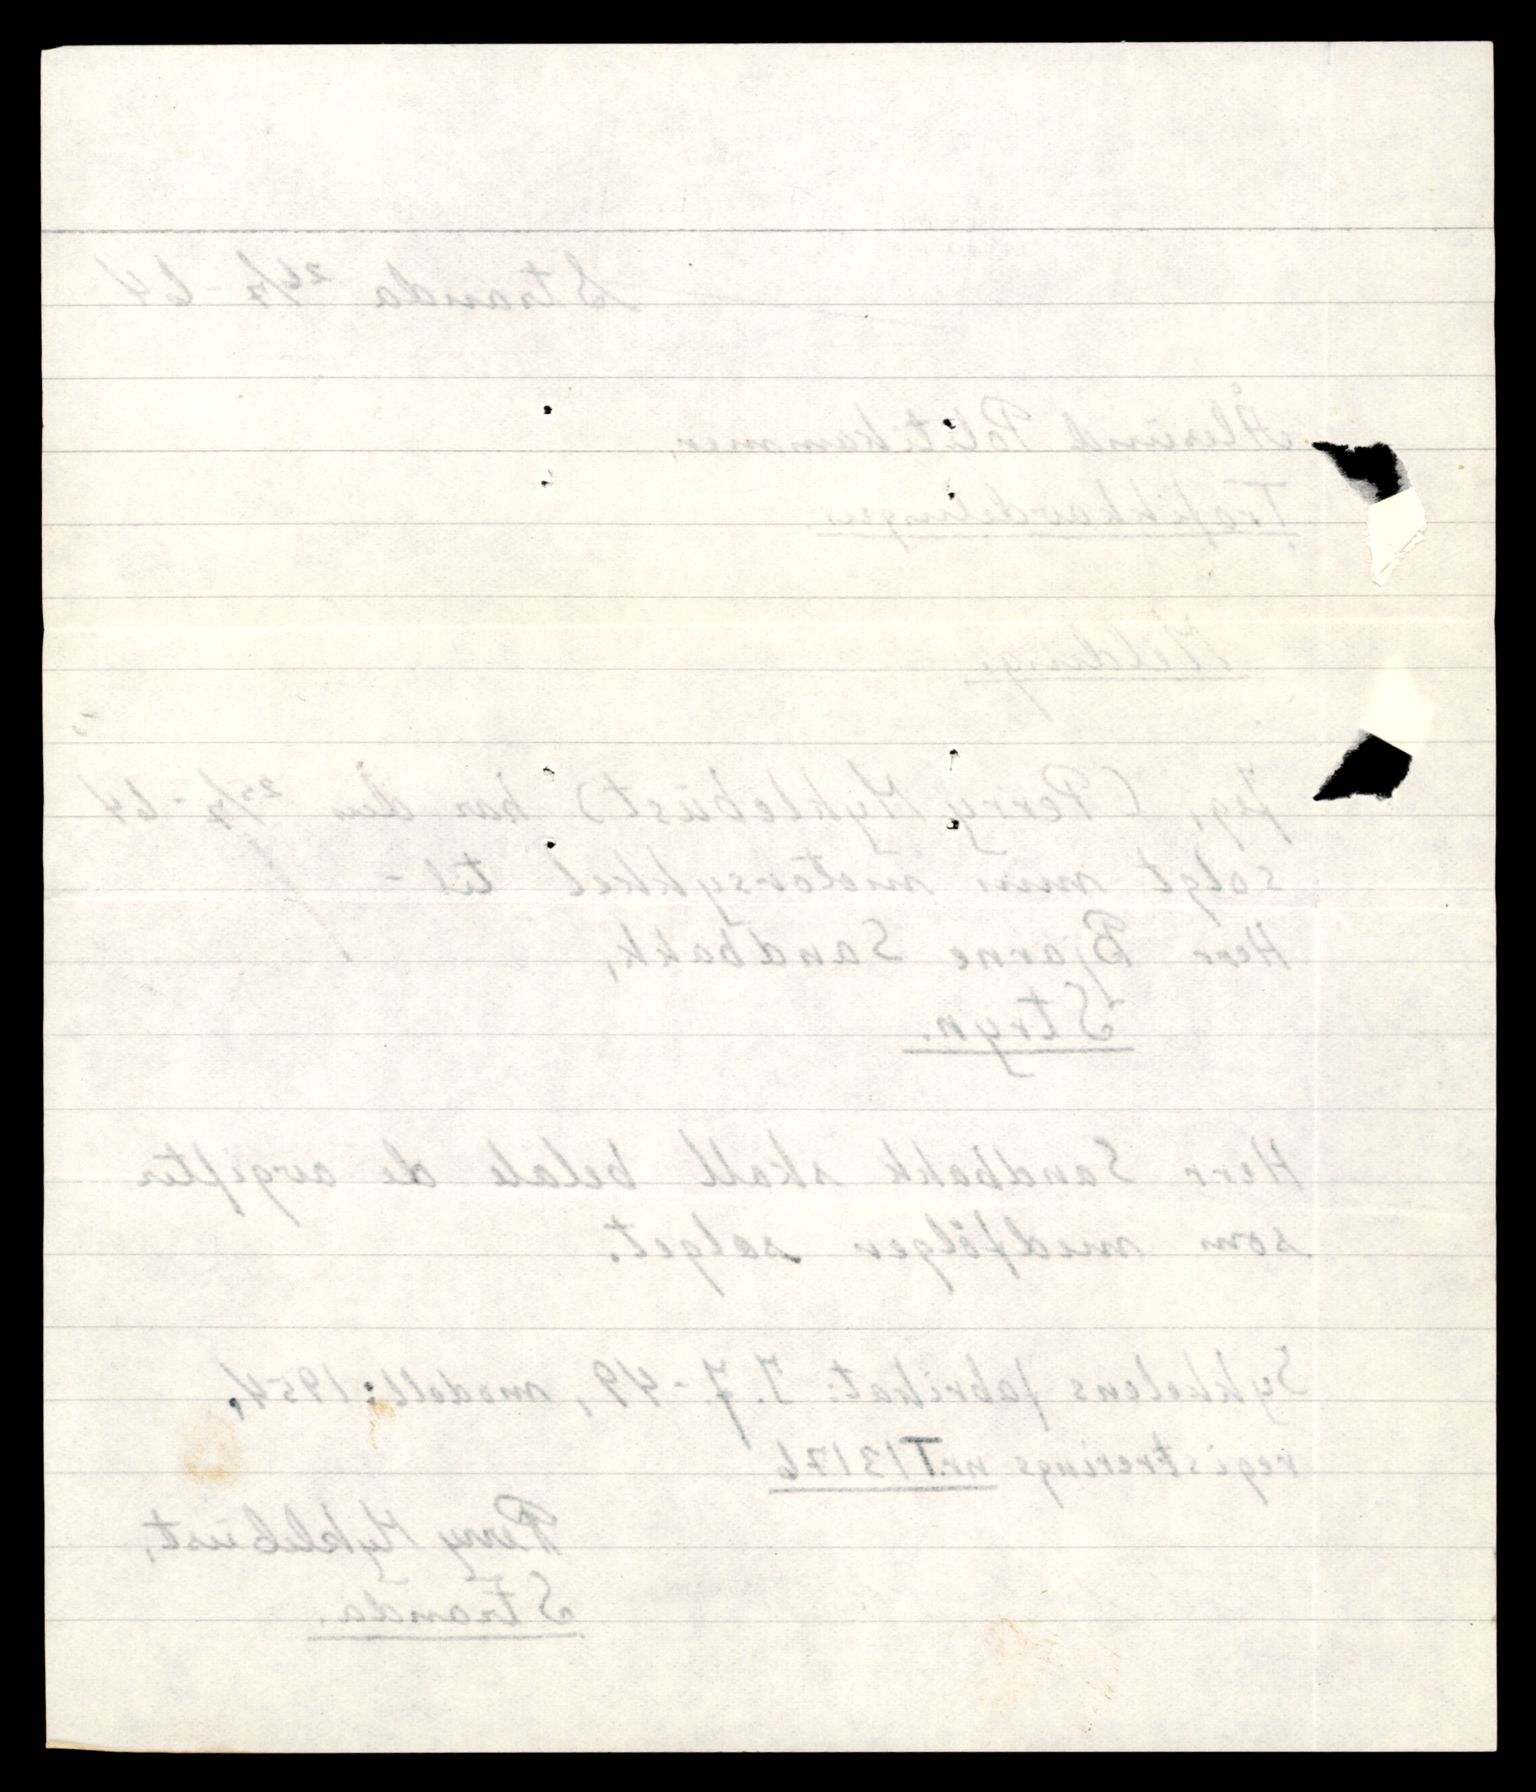 Stranda 24/7-64
Ålesund Politikammer,
Trafikkavdelingen.
Melding.
Jeg, (Perry Myklebust) har den 22/7-64
solgt min motorsykkel til -
Herr Bjarne Sandbakk,
Stryn.
Herr Sandbakk skall betale de avgifter
som medfölger salget.
Sykkelens fabrikat: I.J.-49, modell: 1954,
registrerings nr. T13176
Perry Myklebust,
Stranda.